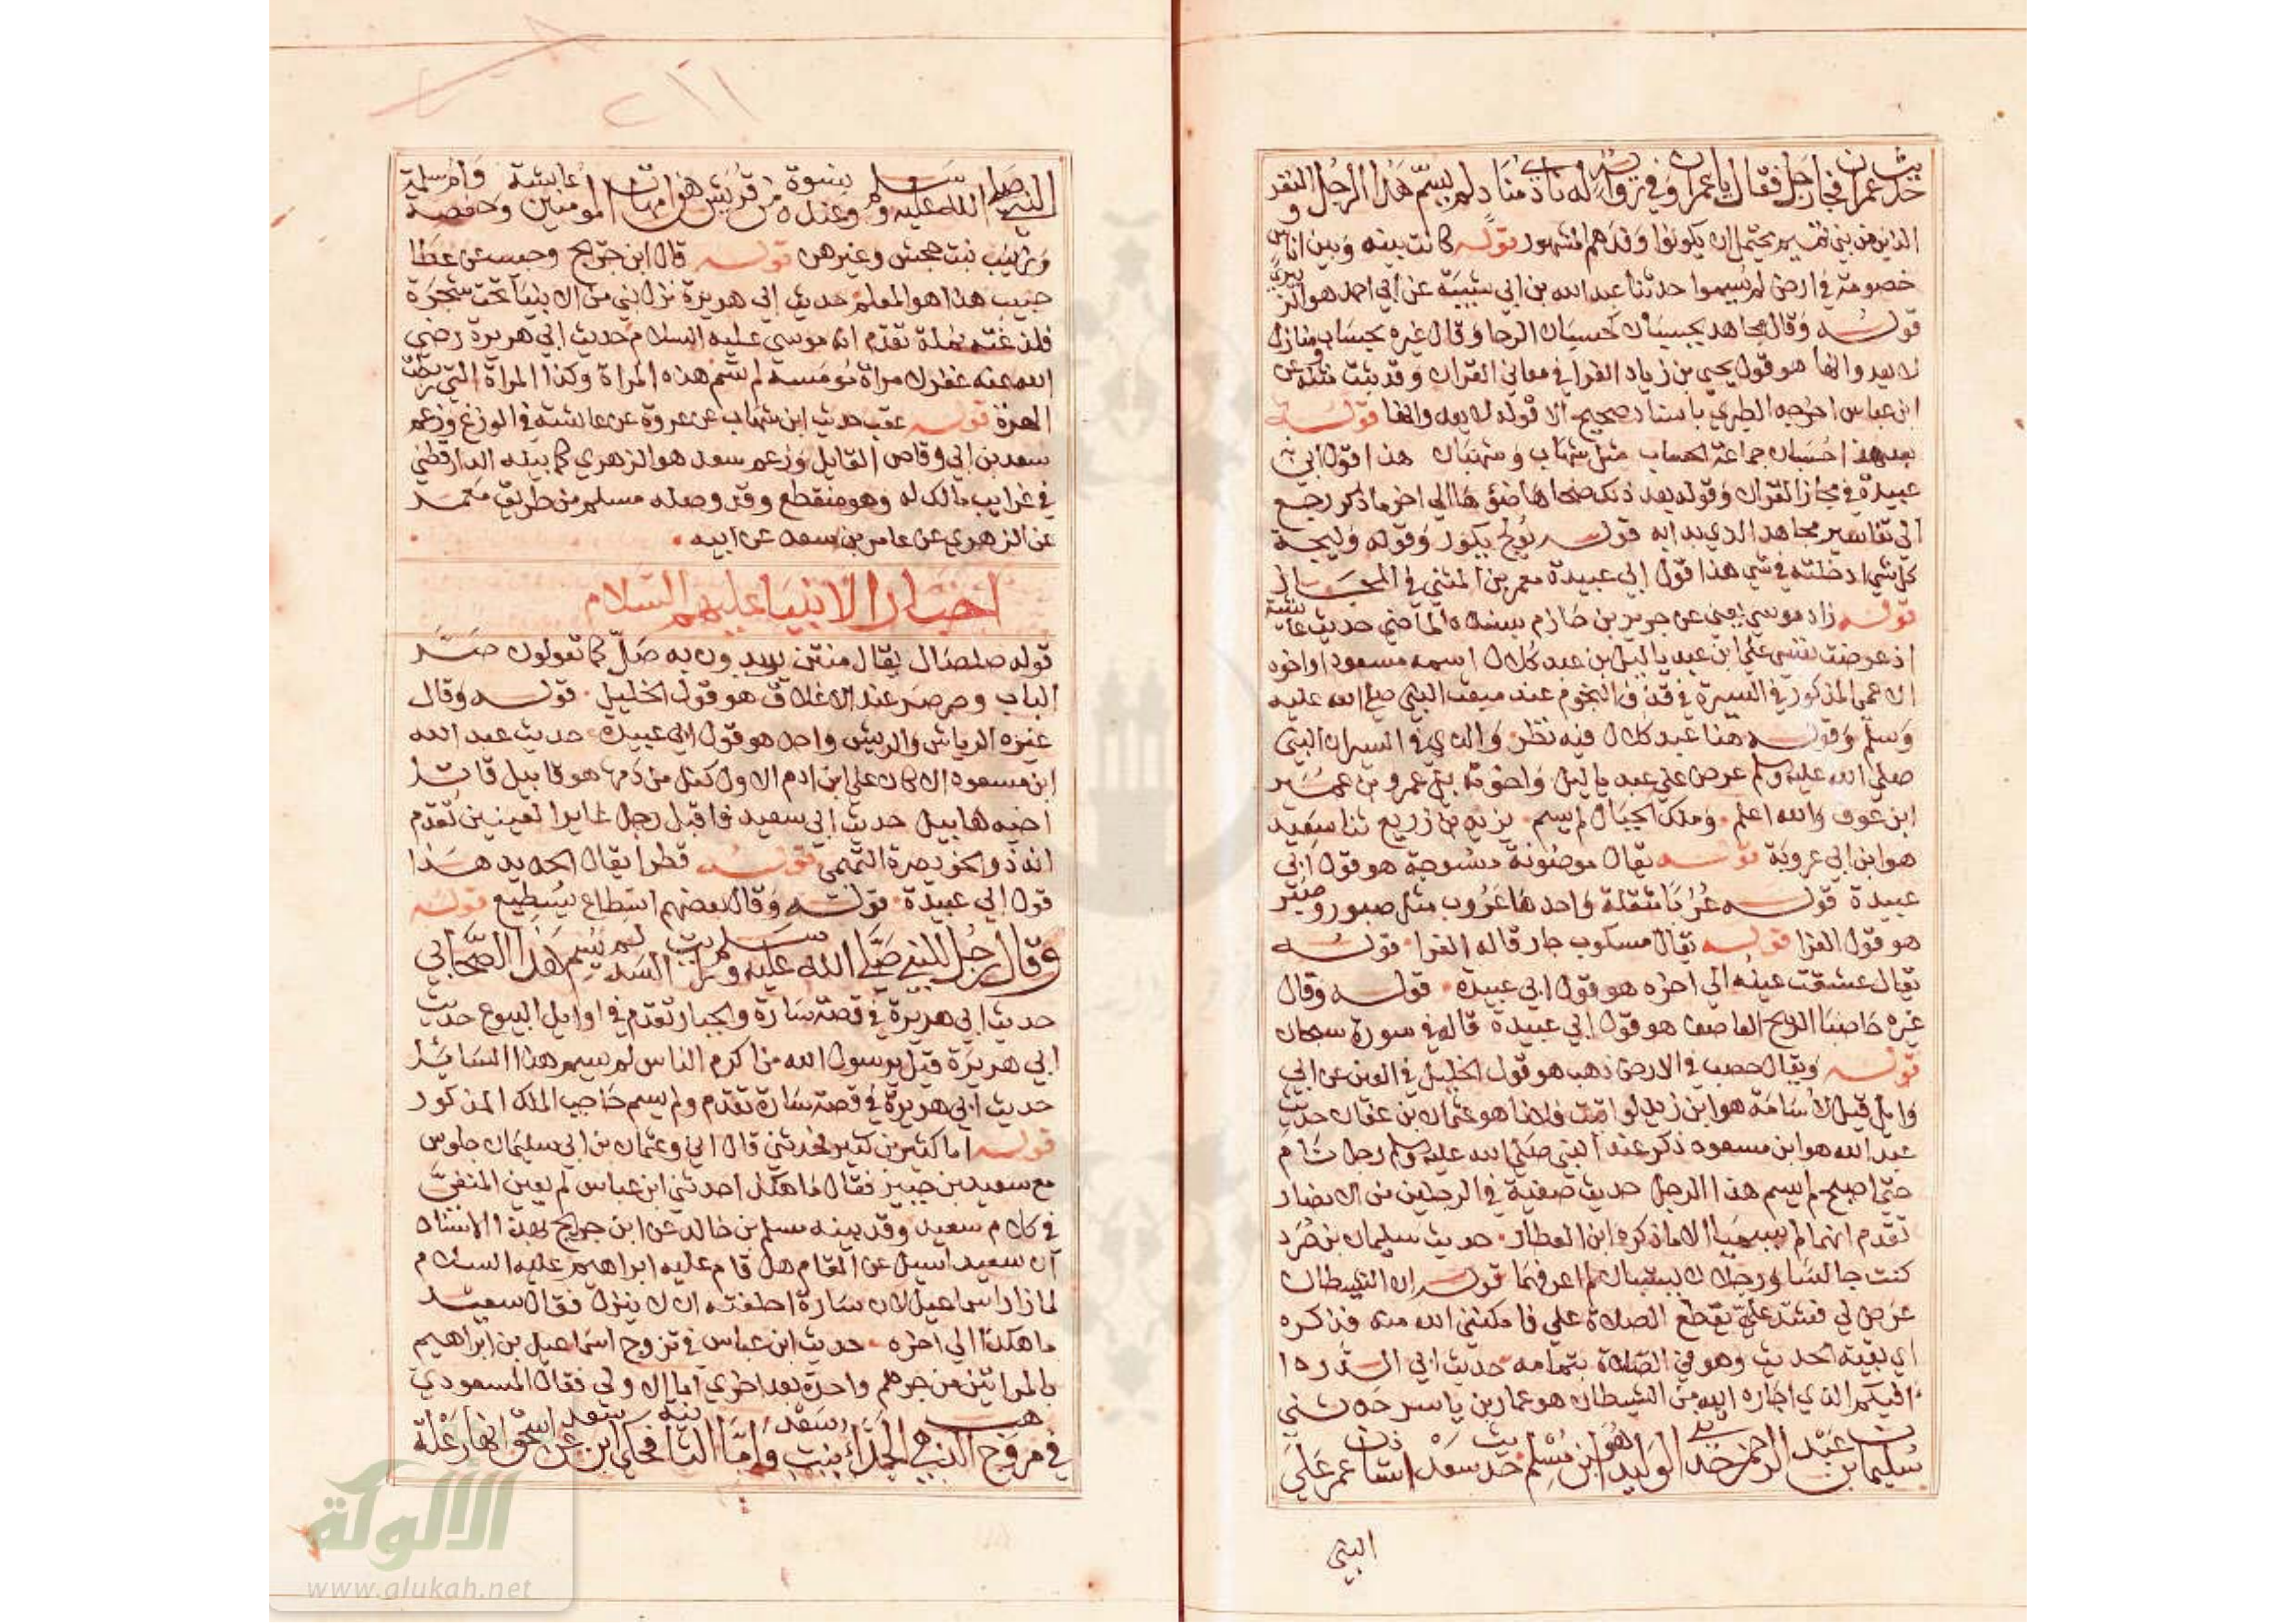 حديث عمران فجا رجل فقال يا عمران وفي رواية له نادا مناد لم يسم هذا الرجل النفر
الذين من بني تميم يحتمل ان يكونوا وفدهم المشهور قوله كانت بينه وبين اناس
خصومة في ارض لم يسموا حدثنا عبد الله بن ابي شيبة عن ابي احمد هو الزبيري
قوله وقال مجاهد بحسبان كحسبان الرحا وقال غيره بحساب ومنازل
لا يعدوانها هو قول يحيى بن زياد الفرا في معاني القران وقد ثبت مثله عن
ابن عباس اخرجه الطبري باسناد صحيح الا قوله لا يعدوانها قوله
بعد هذا حسبان جماعة الحساب مثل شهاب وشهبان هذا قول ابي
عبيدة في مجاز القران وقوله بعد ذلك ضحاها ضوءها الي اخر ما ذكر رجع
الى تفاسير مجاهد الذي بدا به قوله يولج يكور وقوله وليجة
كل شي ادخلته في شي هذا قول ابي عبيدة معمر بن المثني في المجاز
قوله زاد موسي يعني عن جرير بن حازم بسنده الماضي حديث عائشة
اذ عرضت نفسي علي ابن عبد ياليل بن عبد كلال اسمه مسعود او اخوه
الاعمى المذكور في السيرة في قذف النجوم عند مبعث النبي صلى الله عليه
وسلم وقوله هنا عبد كلال فيه نظر والذي في السير ان النبي
صلى الله عليه وسلم عرض علي عبد ياليل واخوته بني عمرو بن عمير
ابن عوف والله اعلم وملك الجبال لم يسم يزيد بن زريع ثنا سعيد
هو ابن ابي عروبة قوله يقال موضونة منسوجة هو قول ابي
عبيدة قوله عربا مثقلة واحدها عروب مثل صبور وصبر
هو قول الفرا قوله يقال مسكوب جار قاله الفرا قوله
يقال غسقت عينه الي اخره هو قول ابي عبيدة قوله وقال
غيره حاصبا الريح العاصف هو قول ابي عبيدة قاله في سورة سبحان
قوله ويقال حصب في الارض ذهب هو قول الخليل في العين عن ابي
وايل قيل لاسامة هو ابن زيد لو اتيت فلانا هو عثمان بن عفان حديث
عبد الله هو ابن مسعود ذكر عند النبي صلى الله عليه وسلم رجل نام
حتى اصبح لم يسم هذا الرجل حديث صفية في الرجلين من الانصار
تقدم انهما لم يسميا الا ما ذكره ابن العطار حديث سليمان بن صرد
كنت جالسا ورجلان يستبان لم اعرفهما قوله ان الشيطان
عرض لي فشد علي يقطع الصلاة علي فامكنني الله منه فذكره
اي بقية الحديث وهو في الصلاة بتمامه حديث ابي الدردا
افيكم الذي اجاره الله من الشيطان هو عمار بن ياسر حدثني
سليمان بن عبد الرحمن حدثني الوليد هو ابن مسلم حديث سعد استاذن عمر على
النبي
النبي صلى الله عليه وسلم وعنده نسوة من قريش هن امهات المومنين عايشة وحفصة وام سلمة
وزينب بنت جحش وغيرهن قوله قال ابن جريج وحبيب عن عطا
حبيب هذا هو المعلم حديث ابي هريرة نزل نبي من الانبيا تحت شجرة
فلدغته نملة تقدم انه موسي عليه السلام حديث ابي هريرة رضي
الله عنه غفر لامراة مومسة لم تسم هذه المراة وكذا المراة التي ربطت
الهرة قوله عقب حديث ابن شهاب عن عروة عن عائشة في الوزغ وزعم
سعد بن ابي وقاص القايل وزعم سعد هو الزهري كما بينه الدارقطني
في غرايب مالك له وهو منقطع وقد وصله مسلم من طريق معمر
عن الزهري عن عامر بن سعد عن ابيه
اخبار الانبيا عليهم السلام
قوله صلصال يقال منتن يريدون به صل كما تقولون صر
الباب وصرصر عند الاغلاق هو قول الخليل قوله وقال
غيره الرياش والريش واحد هو قول ابي عبيدة حديث عبد الله
ابن مسعود الا كان علي ابن ادم الاول كفل من دمها هو قابيل قاتل
اخيه هابيل حديث ابي سعيد فاقبل رجل غاير العينين تقدم
انه ذو الخويصرة التميمي قوله قطرا يقال الحديد هذا
قول ابي عبيدة قوله وقال بعضهم استطاع يسطيع قوله
وقال رجل للنبي صلى الله عليه وسلم رايت السد لم يسم هذا الصحابي
حديث ابي هريرة في قصة سارة والجبار تقدم في اوايل البيوع حديث
ابي هريرة قيل يرسول الله من اكرم الناس لم يسم هذا السايل
حديث ابي هريرة في قصة سارة تقدم ولم يسم حاجب الملك المذكور
قوله اما كثير بن كثير فحدثني قال اني وعثمان بن ابي سليمان جلوس
مع سعيد بن جبير فقال ما هكذا حدثني ابن عباس لم يعين المنفي
في كلام سعيد وقد بينه مسلم بن خالد عن ابن جريج بهذا الاسناد
ان سعيدا سيل عن المقام هل قام عليه ابراهيم عليه السلام
لما زار اسماعيل لان سارة احلفته ان لا ينزل فقال سعيد
ما هكذا الي اخره حديث ابن عباس في تزوج اسماعيل بن ابراهيم
بالمراتين من جرهم واحدة بعد اخري اما الاولى فقال المسعودي
في مروج الذهب الجدا بنت سعد واما الثانية فحكي ابن سعد عن ابن اسحق انها رعلة
الألوكة
www.alukah.net